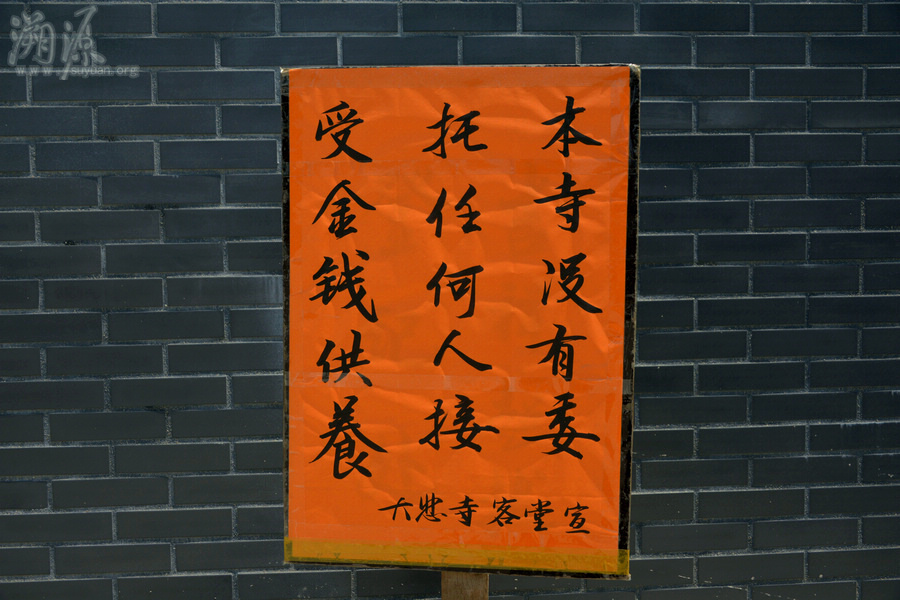 本寺没有委
托任何人接
受金钱供養
大悲寺客堂宣
溯源
www.suyuan.org